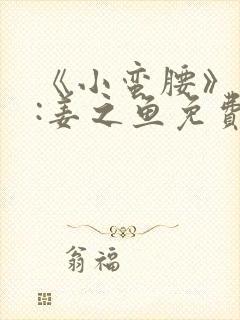 《小蛮腰》
:姜之鱼免費
翁福